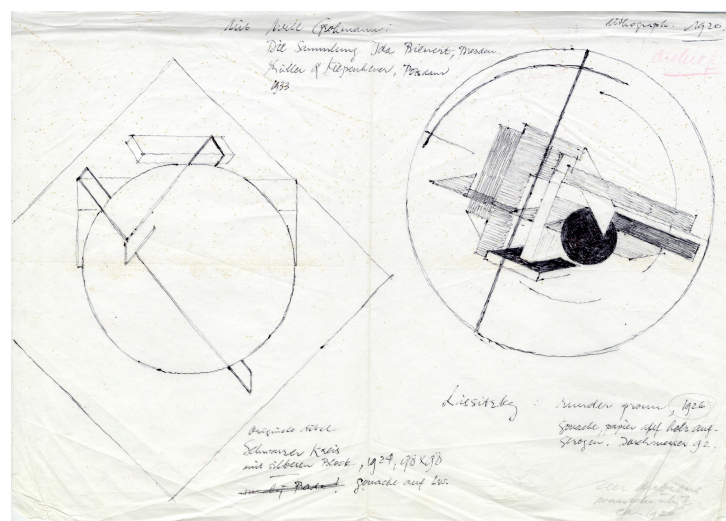 Aus Will Grohmann:
Die Sammlung Ida Bienert, Dresden
Müller & Kiepenheuer, Potsdam
1933
Lithograph: 1920
Lissitzky : runder proun, 1926
Gouache, papier auf holz auf-
gezogen. Durchmesser 92.
originale titel
Schwarzer Kreis
mit silbernen Block, 1924, 98 x 98
gouache auf Lw.